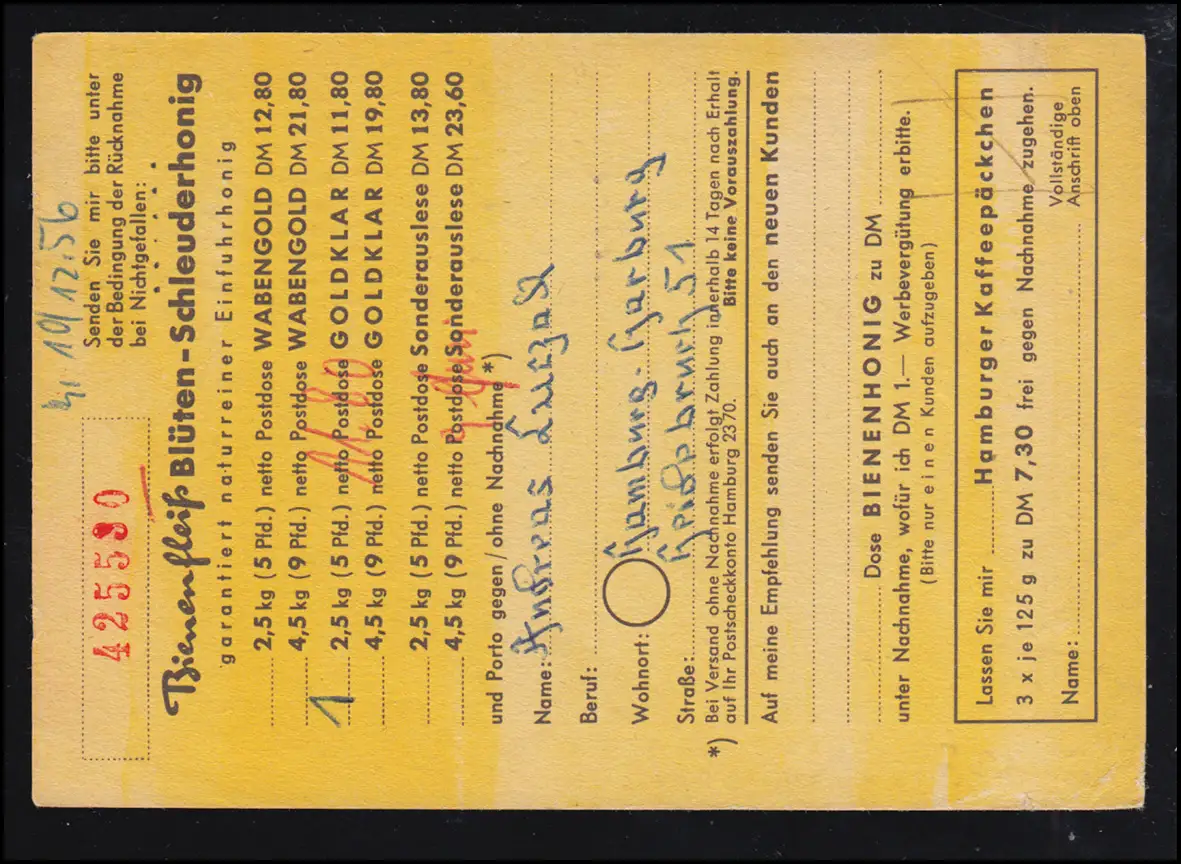 br. 10/12.56
425530
Senden Sie mir bitte unter
der Bedingung der Rücknahme
bei Nichtgefallen:
Bienenfleiß Blüten-Schleuderhonig
garantiert naturreiner Einfuhrhonig
2,5 kg (5 Pfd.) netto Postdose WABENGOLD DM 12,80
4,5 kg (9 Pfd.) netto Postdose WABENGOLD DM 21,80
1 2,5 kg (5 Pfd.) netto Postdose GOLDKLAR DM 11,80
11.80
4,5 kg (9 Pfd.) netto Postdose GOLDKLAR DM 19,80
2,5 kg (5 Pfd.) netto Postdose Sonderauslese DM 13,80
4,5 kg (9 Pfd.) netto Postdose Sonderauslese DM 23,60
und Porto gegen / ohne Nachnahme *)
Name: Andreas
Beruf:
Wohnort: Hamburg-Harburg
Straße: 51
*) Bei Versand ohne Nachnahme erfolgt Zahlung innerhalb 14 Tagen nach Erhalt
auf Ihr Postscheckkonto Hamburg 23 70. Bitte keine Vorauszahlung.
Auf meine Empfehlung senden Sie auch an den neuen Kunden
Dose BIENENHONIG zu DM
unter Nachnahme, wofür ich DM 1.— Werbevergütung erbitte.
(Bitte nur einen Kunden aufzugeben)
Lassen Sie mir Hamburger Kaffeepäckchen
3 x je 125 g zu DM 7,30 frei gegen Nachnahme zugehen.
Name: Vollständige
Anschrift oben